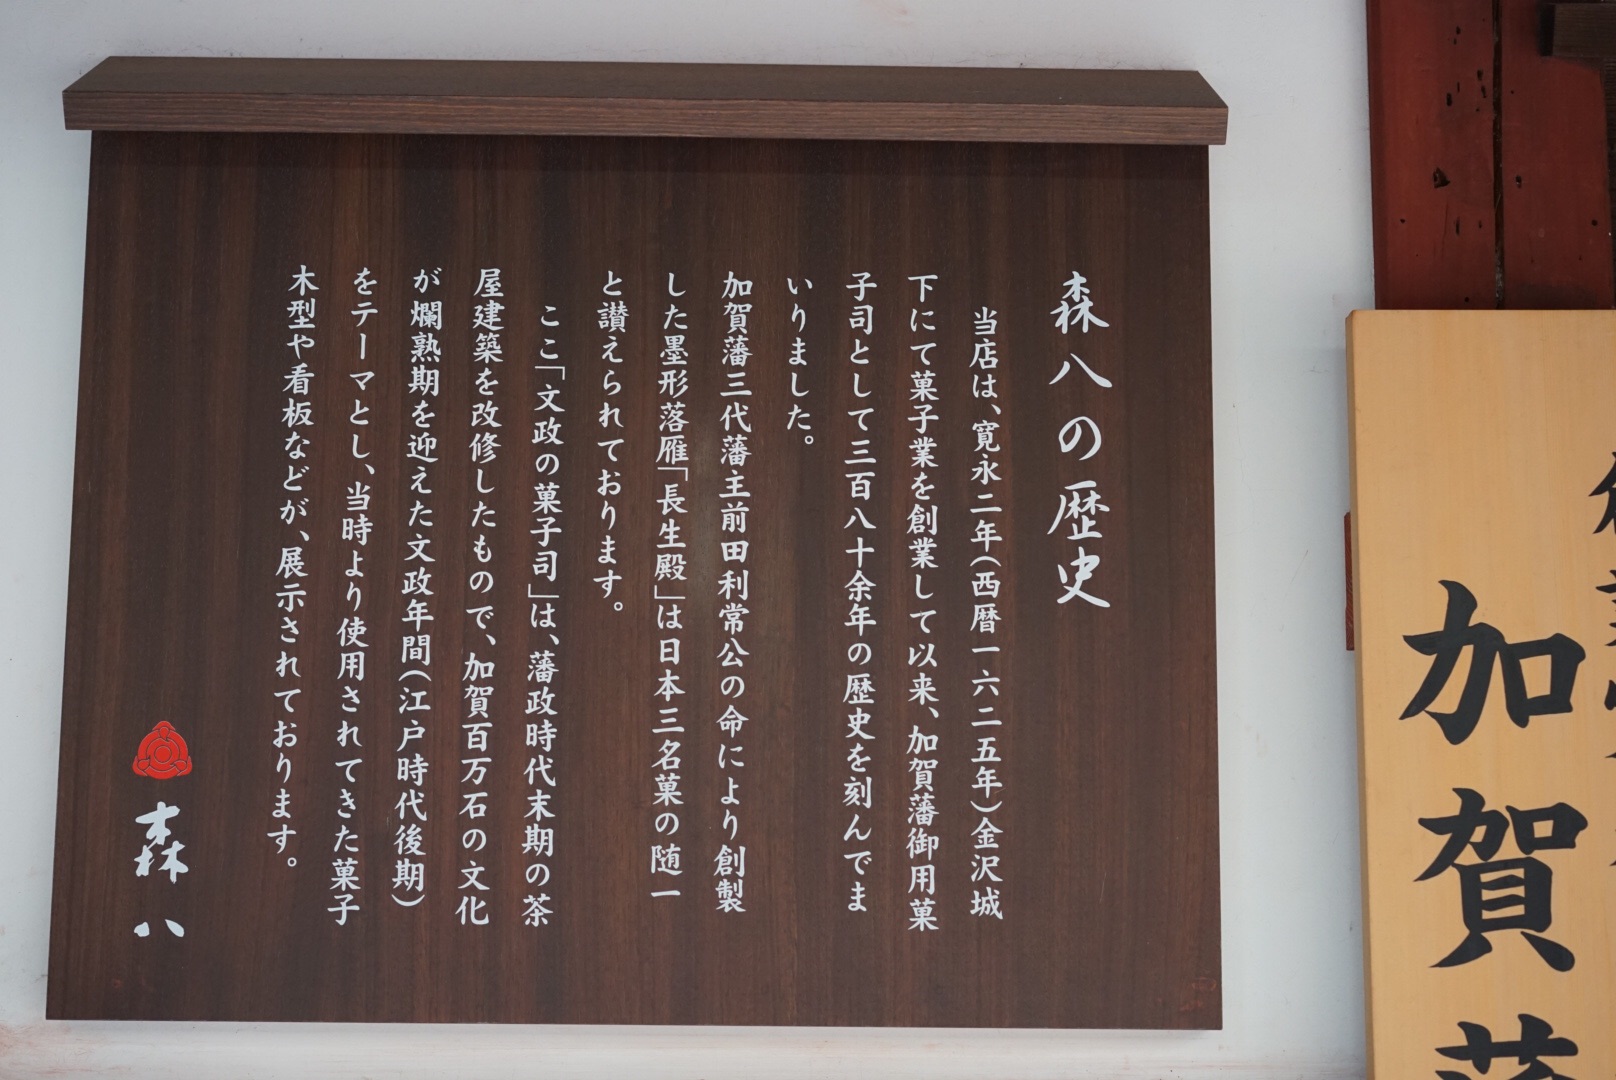 森八の歴史
当店は、寛永二年(西暦一六二五年)金沢城
下にて菓子業を創業して以来、加賀藩御用菓
子司として三百八十余年の歴史を刻んでま
いりました。
加賀藩三代藩主前田利常公の命により創製
した墨形落雁「長生殿」は日本三名菓の随一
と讃えられております。
ここ「文政の菓子司」は、藩政時代末期の茶
屋建築を改修したもので、加賀百万石の文化
が爛熟期を迎えた文政年間(江戸時代後期)
をテーマとし、当時より使用されてきた菓子
木型や看板などが、展示されております。
森八
加賀